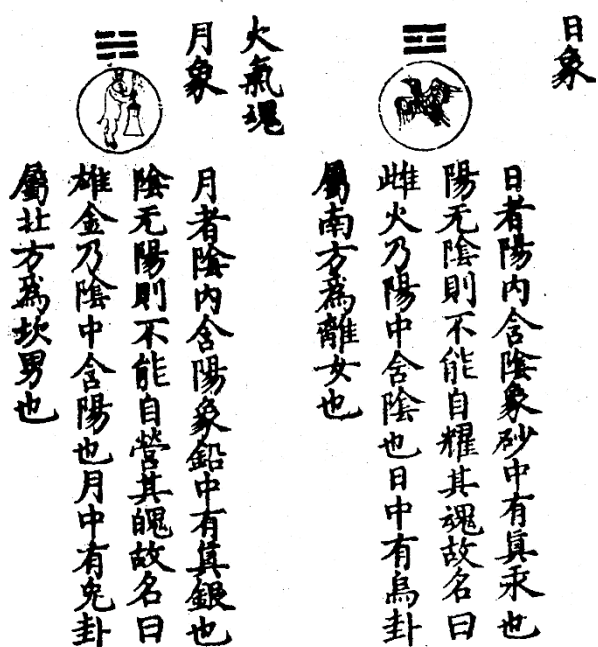 日象
日者陽内含陰象砂中有眞汞也
陽无陰則不能自耀其魂故名曰
雌火乃陽中含陰也日中有烏卦
屬南方爲離女也
火氣魂
月象
月者陰内含陽象鉛中有眞銀也
陰无陽則不能自營其魄故名曰
雄金乃陰中含陽也月中有兔卦
屬北方爲坎男也